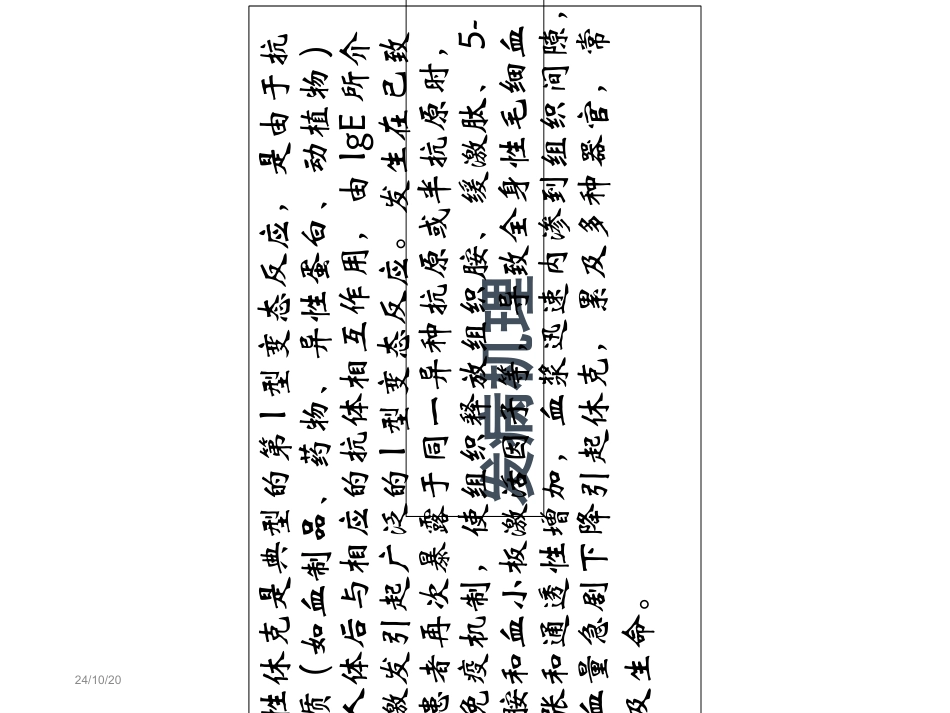 发病机理
性休克是典型的第I型变态反应，是由于抗
质（如血制品、药物、异性蛋白、动植物）
人体后与相应的抗体相互作用，由IgE所介
激发引起广泛的I型变态反应。发生在已致
患者再次暴露于同一异种抗原或半抗原时，
免疫机制，使组织释放组织胺、缓激肽、5-
胺和血小板激活因子等，导致全身性毛细血
张和通透性增加，血浆迅速内渗到组织间隙，
血量急剧下降引起休克，累及多种器官，常
及生命。
24/10/20